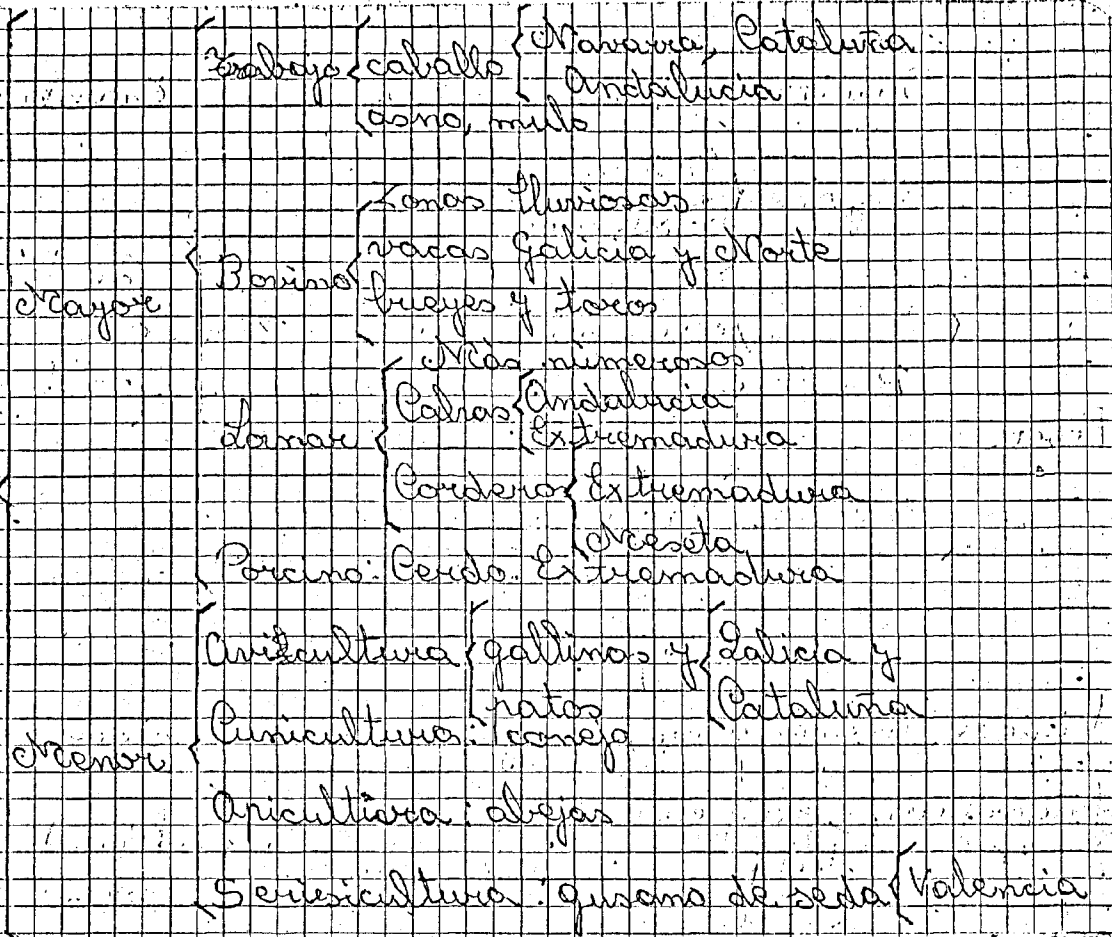 Trabajo caballo Navarra, Cataluña
Andalucia
asno, mulo
Zonas lluviosas
vacas Galicia y Norte
Bovino
bueyes y toros
Mayor
Más numerosos
Cabras Andalucia
Lanar Extremadura
Corderos Extremadura
Meseta
Porcino: Cerdo. Extremadura
Avicultura gallinas y Galicia y
patos Cataluña
Cunicultura: conejo
Menor
Apicultura: abejas
Serisicultura: gusano de seda Valencia